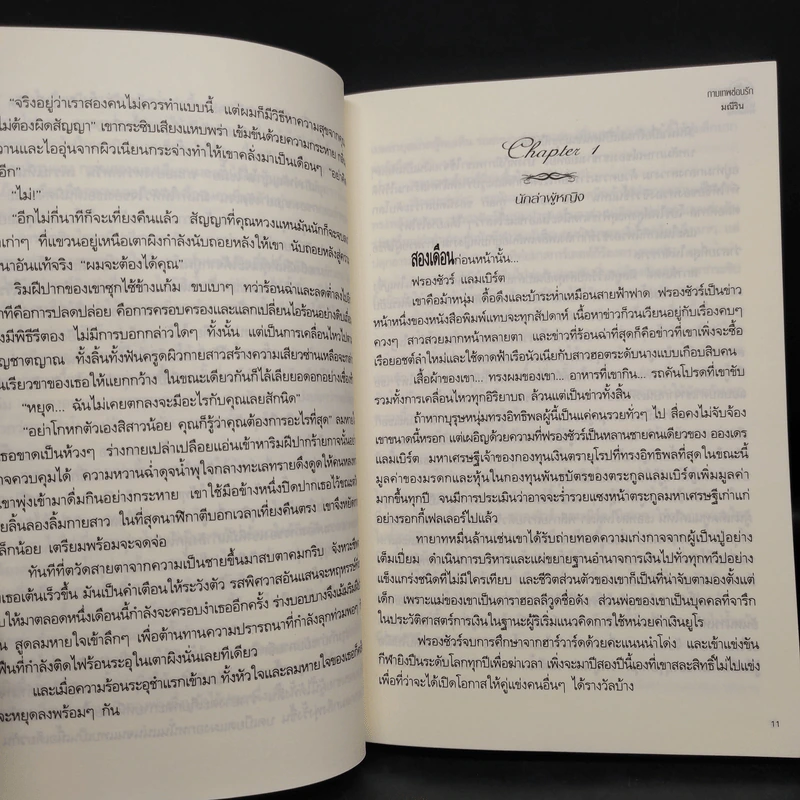 "จริงอยู่ว่าเราสองคนไม่ควรทำแบบนี้ แต่ผมก็มีวิธีหาความสุขจากคุณ
ไม่ต้องผิดสัญญา" เขากระซิบเสียงแหบพร่า เข้มข้นด้วยความกระหาย
วานและไออุ่นจากผิวเนียนกระจ่างทำให้เขาคลั่งมาเป็นเดือนๆ
อีก"
"ไม่!"
"อีกไม่กี่นาทีก็จะเที่ยงคืนแล้ว สัญญาที่คุณหวงแหนมันนักก็จะจบลง
เก่าๆ ที่แขวนอยู่เหนือเตาผิงกำลังนับถอยหลังให้เขา นับถอยหลังสู่
นาอันแท้จริง "ผมจะต้องได้คุณ"
ริมฝีปากของเขาซุกไซ้ข้างแก้ม ขบเบาๆ ทว่าร้อนฉ่าและลดต่ำลงไป
าทีคือการปลดปล่อย คือการครอบครองและแลกเปลี่ยนไอร้อนอย่าง
งมีพิธีรีตอง ไม่มีการบอกกล่าวใดๆ ทั้งนั้น แต่เป็นการเคลื่อนไหวไป
ญชาตญาณ ทั้งลิ้นทั้งฟันครูดผิวกายสาวสร้างความเสียวซ่านเหลือ
นเรียวขาของเธอให้แยกกว้าง ในขณะเดียวกันก็ไล้เลียยอดอกอย่าง
"หยุด... ฉันไม่เคยตกลงจะมีอะไรกับคุณเลยสักนิด"
"อย่าโกหกตัวเองสิสาวน้อย คุณก็รู้ว่าคุณต้องการอะไรที่สุด"
เธอขาดเป็นห้วงๆ ร่างกายเปล่าเปลือยแอ่นเข้าหาริมฝีปากร้ายกาจนั้น
าจควบคุมได้ ความหวานฉ่ำดุจน้ำพุใจกลางทะเลทรายดึงดูดให้คน
เขาพุ่งเข้ามาดื่มกินอย่างกระหาย เขาใช้มือข้างหนึ่งปิดปากเธอไว้
ยลิ้นลองลิ้มกายสาว ในที่สุดนาฬิกาตีบอกเวลาเที่ยงคืนตรง เขาจึง
ล็กน้อย เตรียมพร้อมจะจดจ่อ
ทันทีที่ตวัดสายตาจากความเป็นชายขึ้นมาสบตาคมกริบ จังหวะ
เธอเต้นเร็วขึ้น มันเป็นคำเตือนให้ระวังตัว รสพิศวาสอันแสนจะ
ไปให้มาตลอดหนึ่งเดือนนี้กำลังจะครอบงำเธออีกครั้ง ร่างบอบบางจึง
น สูดลมหายใจเข้าลึกๆ เพื่อต้านทานความปรารถนาที่กำลังลุกท่วม
ฟืนที่กำลังติดไฟร้อนระอุในเตาผิงนั่นเลยทีเดียว
และเมื่อความร้อนระอุชำแรกเข้ามา ทั้งหัวใจและลมหายใจของเธอ
จะหยุดลงพร้อมๆ กัน
กามเทพซ่อนรัก
มณีริน
Chapter 1
นักล่าผู้หญิง
สองเดือนก่อนหน้านั้น...
ฟรองซัวร์ แลมเบิร์ต
เขาคือม้าหนุ่ม ดื้อดึงและบ้าระห่ำเหมือนสายฟ้าฟาด ฟรองซัวร์เป็นข่าว
หน้าหนึ่งของหนังสือพิมพ์แทบจะทุกสัปดาห์ เนื้อหาข่าวก็วนเวียนอยู่กับเรื่องคบๆ
ควงๆ สาวสวยมากหน้าหลายตา และข่าวที่ร้อนฉ่าที่สุดก็คือข่าวที่เขาเพิ่งจะซื้อ
เรือยอชต์ลำใหม่และใช้ดาดฟ้าเรือนัวเนียกับสาวฮอตระดับนางแบบเกือบสิบคน
เสื้อผ้าของเขา... ทรงผมของเขา... อาหารที่เขากิน... รถคันโปรดที่เขาขับ
รวมทั้งการเคลื่อนไหวทุกอิริยาบถ ล้วนแต่เป็นข่าวทั้งสิ้น
ถ้าหากบุรุษหนุ่มทรงอิทธิพลผู้นี้เป็นแค่คนรวยทั่วๆ ไป สื่อคงไม่จับจ้อง
เขาขนาดนี้หรอก แต่เผอิญด้วยความที่ฟรองซัวร์เป็นหลานชายคนเดียวของ อองเดร
แลมเบิร์ต มหาเศรษฐีเจ้าของกองทุนเงินตรายุโรปที่ทรงอิทธิพลที่สุดในขณะนี้
มูลค่าของมรดกและหุ้นในกองทุนพันธบัตรของตระกูลแลมเบิร์ตเพิ่มมูลค่า
มากขึ้นทุกปี จนมีการประเมินว่าอาจจะร่ำรวยแซงหน้าตระกูลมหาเศรษฐีเก่าแก่
อย่างรอกกี้เฟลเลอร์ไปแล้ว
ทายาทหมื่นล้านเช่นเขาได้รับถ่ายทอดความเก่งกาจจากผู้เป็นปู่อย่าง
เต็มเปี่ยม ดำเนินการบริหารและแผ่ขยายฐานอำนาจการเงินไปทั่วทุกทวีปอย่าง
แข็งแกร่งชนิดที่ไม่มีใครเทียบ และชีวิตส่วนตัวของเขาก็เป็นที่น่าจับตามองตั้งแต่
เด็ก เพราะแม่ของเขาเป็นดาราฮอลลีวูดชื่อดัง ส่วนพ่อของเขาเป็นบุคคลที่จารึก
ในประวัติศาสตร์การเงินในฐานะผู้ริเริ่มแนวคิดการใช้หน่วยค่าเงินยูโร
ฟรองซัวร์จบการศึกษาจากฮาร์วาร์ดด้วยคะแนนนำโด่ง และเข้าแข่งขัน
กีฬายิงปืนระดับโลกทุกปีเพื่อฆ่าเวลา เพิ่งจะมาปีสองปีนี้เองที่เขาสละสิทธิ์ไม่ไปแข่ง
เพื่อที่ว่าจะได้เปิดโอกาสให้คู่แข่งคนอื่นๆ ได้รางวัลบ้าง
11